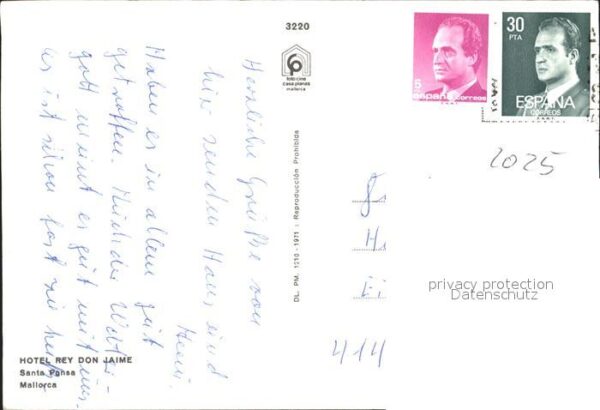 3220
foto cine
casa planas
mallorca
5
españa correos
30
PTA
ESPAÑA
CORREOS
2025
Herzliche Grüße von
hier senden Hans und
Henni.
Haben es in allem gut
getroffen. Auch der Wetter-
gott meint es gut mit uns.
es ist schon fast zu heiß.
DL. PM. 1210 - 1971 : Reproducción Prohibida
g
H
Ei
414
privacy protection
Datenschutz
HOTEL REY DON JAIME
Santa Ponsa
Mallorca